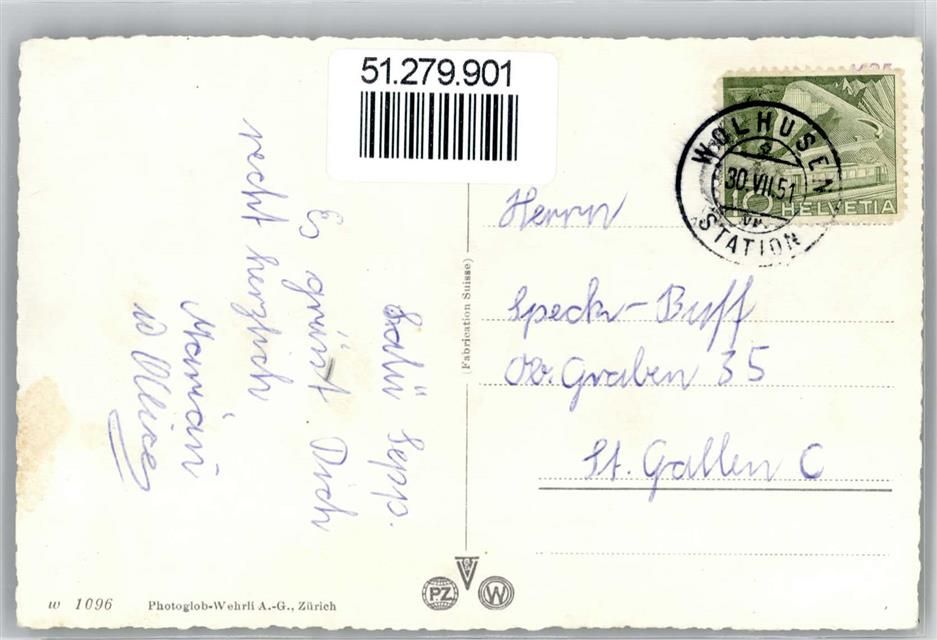 51.279.901
WOLHUSEN
30.VII.51
STATION
10 HELVETIA
Salü Sepp.
Es grüsst Dich
recht herzlich
Mariani
Herrn
Speck-Buff
Ob. Graben 35
St. Gallen C
(Fabrication Suisse)
PZ
W
w 1096
Photoglob-Wehrli A.-G., Zürich